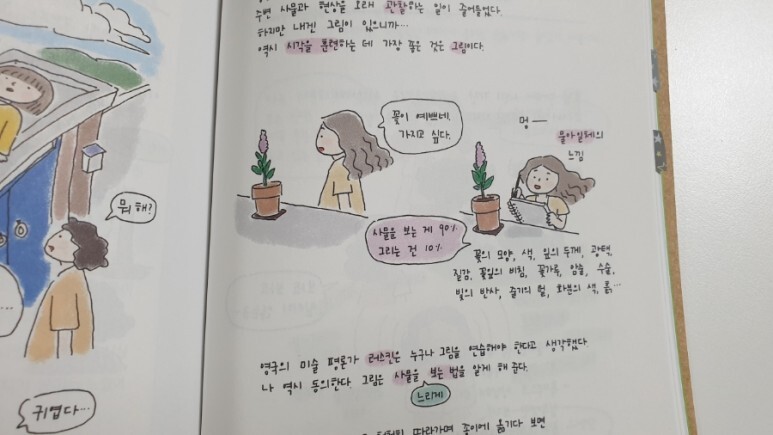 뭐 해?
귀엽다...
주변 사물과 현상을 오래 관찰하는 일이 줄어들었다.
하지만 내겐 그림이 있으니까...
역시 시각을 훈련하는 데 가장 좋은 것은 그림이다.
꽃이 예쁘네.
가지고 싶다.
멍—
물아일체의
느낌
사물을 보는 게 90%
그리는 건 10%
꽃의 모양, 색, 잎의 두께, 광택,
질감, 꽃잎의 비침, 꽃가루, 암술, 수술,
빛의 반사, 줄기의 털, 화분의 색, 흙...
영국의 미술 평론가 러스킨은 누구나 그림을 연습해야 한다고 생각했다.
나 역시 동의한다. 그림은 사물을 보는 법을 알게 해 준다.
느리게
따라가며 종이에 옮기다 보면